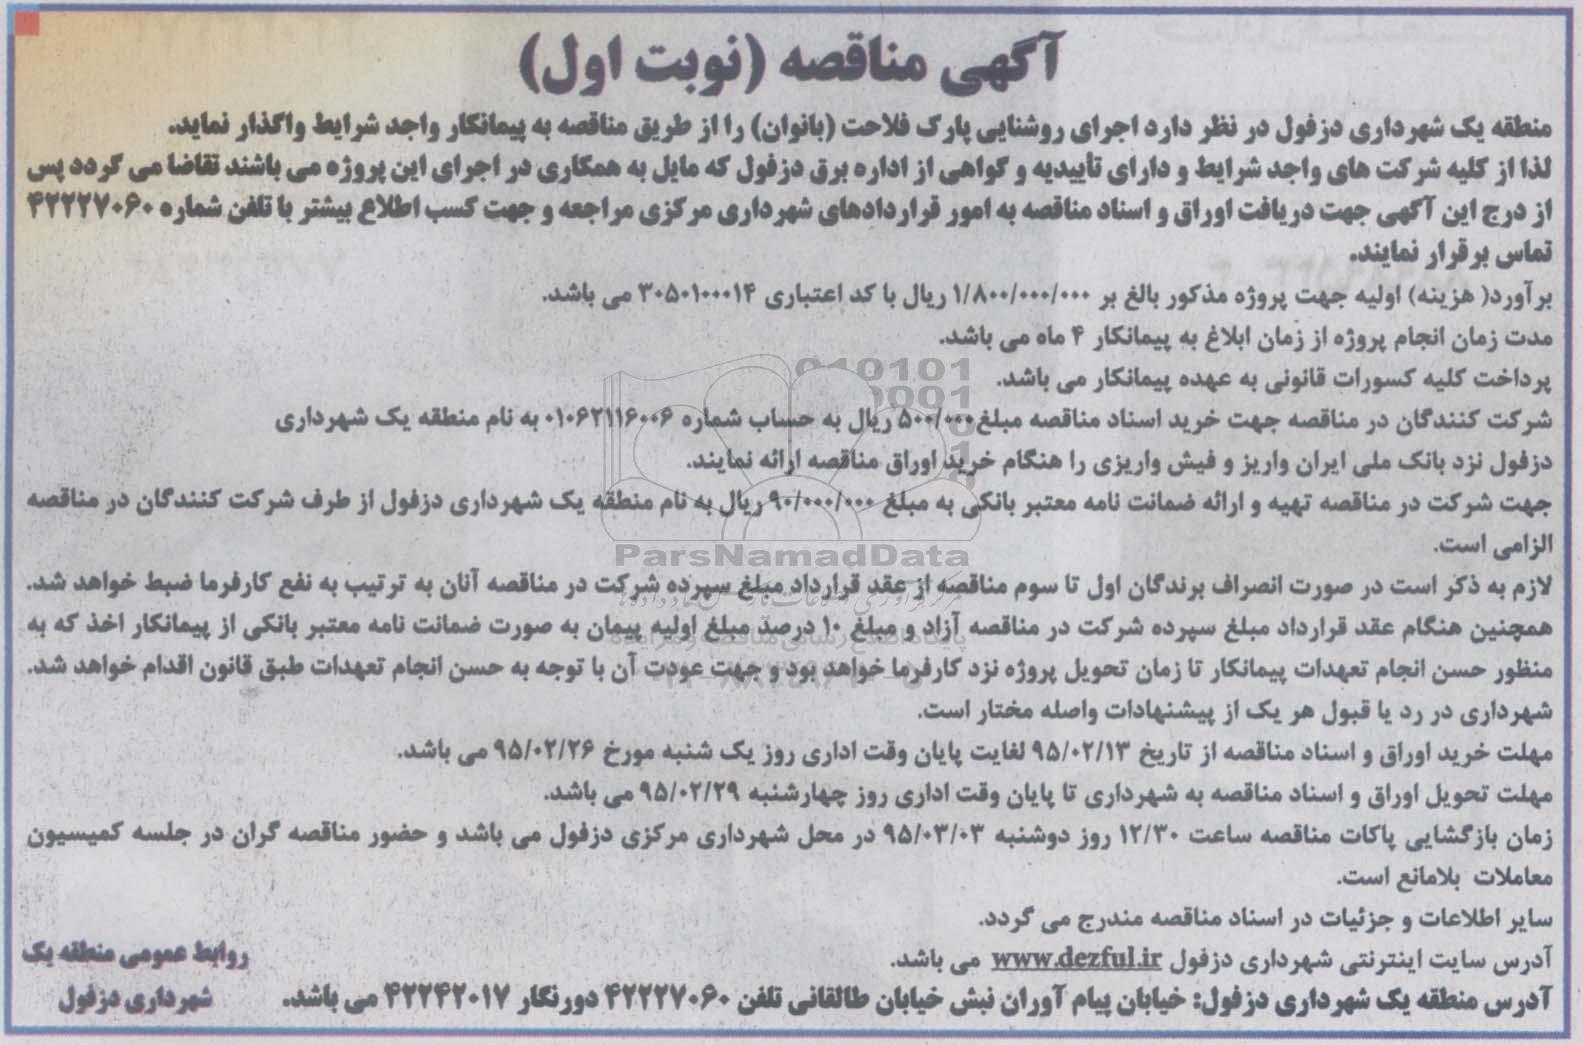 آگهی مناقصه (نوبت اول)
منطقه یک شهرداری دزفول در نظر دارد اجرای روشنایی پارک فلاحت (بانوان) را از طریق مناقصه به پیمانکار واجد شرایط واگذار نماید.
لذا از کلیه شرکت های واجد شرایط و دارای تأییدیه و گواهی از اداره برق دزفول که مایل به همکاری در اجرای این پروژه می باشند تقاضا می گردد پس
از درج این آگهی جهت دریافت اوراق و اسناد مناقصه به امور قراردادهای شهرداری مرکزی مراجعه و جهت کسب اطلاع بیشتر با تلفن شماره ۴۲۲۲۷۰۶۰
تماس برقرار نمایند.
برآورد( هزینه) اولیه جهت پروژه مذکور بالغ بر ۱/۸۰۰/۰۰۰/۰۰۰ ریال با کد اعتباری ۳۰۵۰۱۰۰۰۱۴ می باشد.
مدت زمان انجام پروژه از زمان ابلاغ به پیمانکار ۴ ماه می باشد.
پرداخت کلیه کسورات قانونی به عهده پیمانکار می باشد.
شرکت کنندگان در مناقصه جهت خرید اسناد مناقصه مبلغ۵۰۰/۰۰۰ ریال به حساب شماره ۰۱۰۶۲۱۱۶۰۰۶ به نام منطقه یک شهرداری
دزفول نزد بانک ملی ایران واریز و فیش واریزی را هنگام خرید اوراق مناقصه ارائه نمایند.
جهت شرکت در مناقصه تهیه و ارائه ضمانت نامه معتبر بانکی به مبلغ ۹۰/۰۰۰/۰۰۰ ریال به نام منطقه یک شهرداری دزفول از طرف شرکت کنندگان در مناقصه
الزامی است.
ParsNamadData
لازم به ذکر است در صورت انصراف برندگان اول تا سوم مناقصه از عقد قرارداد مبلغ سپرده شرکت در مناقصه آنان به ترتیب به نفع کارفرما ضبط خواهد شد.
همچنین هنگام عقد قرارداد مبلغ سپرده شرکت در مناقصه آزاد و مبلغ ۱۰ درصد مبلغ اولیه پیمان به صورت ضمانت نامه معتبر بانکی از پیمانکار اخذ که به
منظور حسن انجام تعهدات پیمانکار تا زمان تحویل پروژه نزد کارفرما خواهد بود و جهت عودت آن با توجه به حسن انجام تعهدات طبق قانون اقدام خواهد شد.
شهرداری در رد یا قبول هر یک از پیشنهادات واصله مختار است.
مهلت خرید اوراق و اسناد مناقصه از تاریخ ۹۵/۰۲/۱۳ لغایت پایان وقت اداری روز یک شنبه مورخ ۹۵/۰۲/۲۶ می باشد.
مهلت تحویل اوراق و اسناد مناقصه به شهرداری تا پایان وقت اداری روز چهارشنبه ۹۵/۰۲/۲۹ می باشد.
زمان بازگشایی پاکات مناقصه ساعت ۱۲/۳۰ روز دوشنبه ۹۵/۰۳/۰۳ در محل شهرداری مرکزی دزفول می باشد و حضور مناقصه گران در جلسه کمیسیون
معاملات بلامانع است.
سایر اطلاعات و جزئیات در اسناد مناقصه مندرج می گردد.
آدرس سایت اینترنتی شهرداری دزفول www.dezful.ir می باشد.
آدرس منطقه یک شهرداری دزفول: خیابان پیام آوران نبش خیابان طالقانی تلفن ۴۲۲۲۷۰۶۰ دورنگار ۴۲۲۴۲۰۱۷ می باشد.
روابط عمومی منطقه یک
شهرداری دزفول